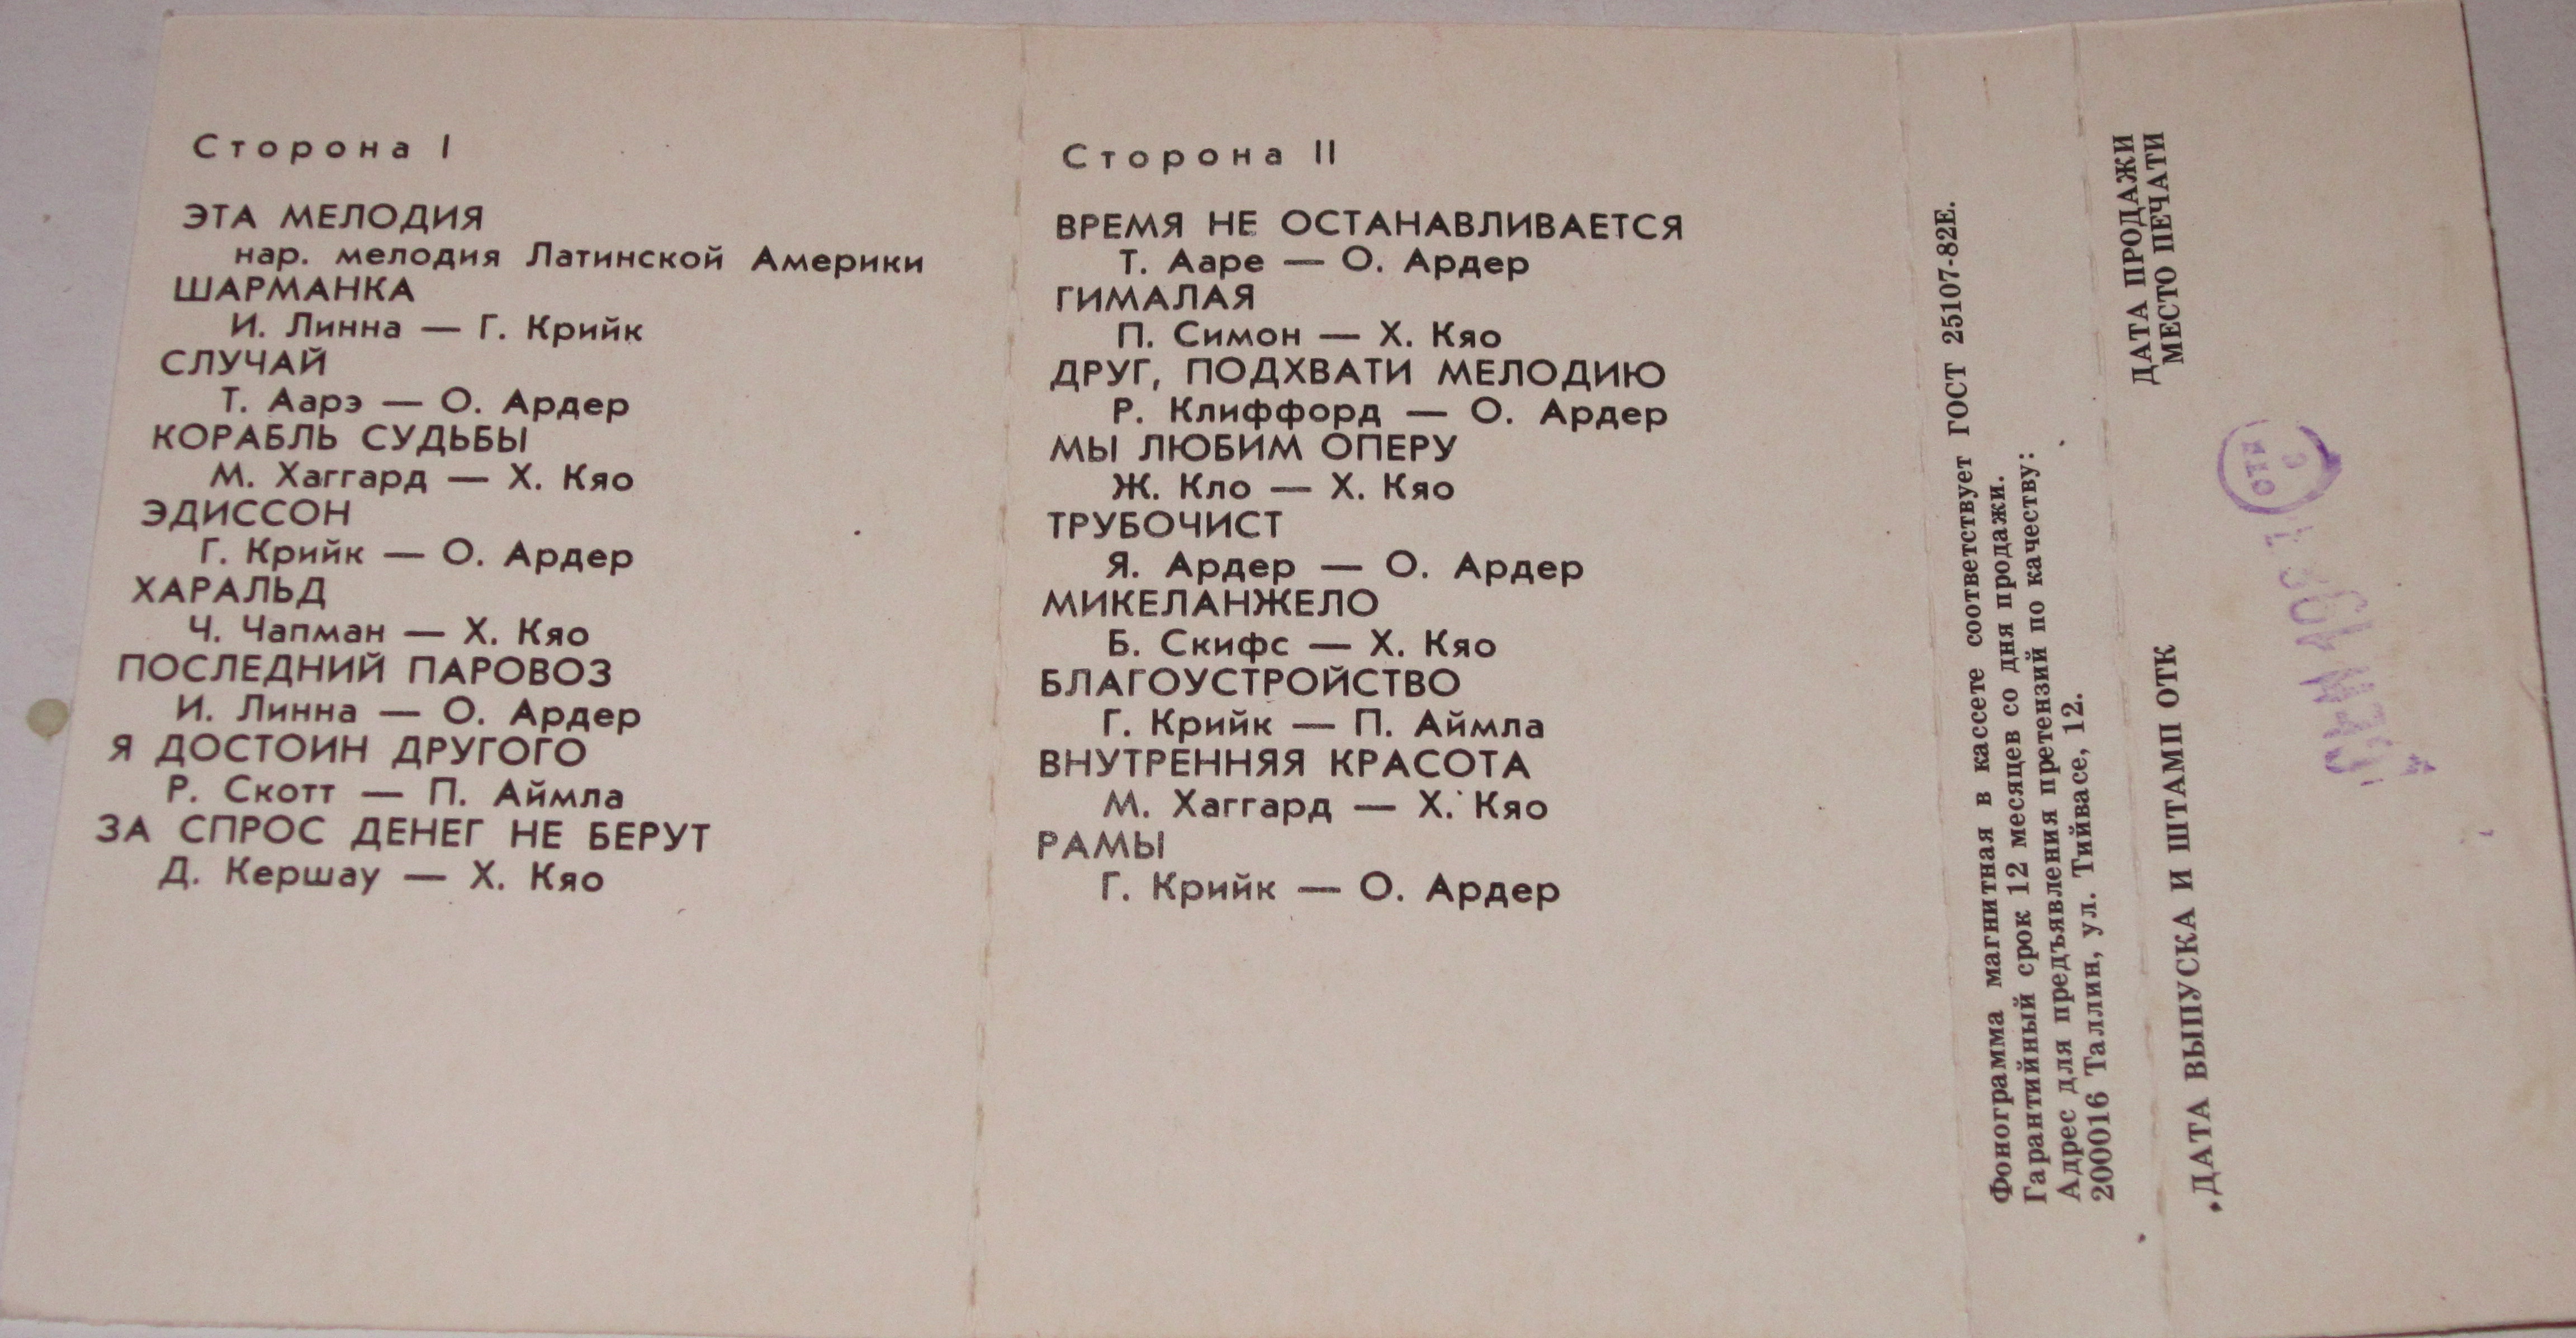 Сторона I
ЭТА МЕЛОДИЯ
нар. мелодия Латинской Америки
ШАРМАНКА
И. Линна — Г. Крийк
СЛУЧАЙ
Т. Аарэ — О. Ардер
КОРАБЛЬ СУДЬБЫ
М. Хаггард — Х. Кяо
ЭДИССОН
Г. Крийк — О. Ардер
ХАРАЛЬД
Ч. Чапман — Х. Кяо
ПОСЛЕДНИЙ ПАРОВОЗ
И. Линна — О. Ардер
Я ДОСТОИН ДРУГОГО
Р. Скотт — П. Аймла
ЗА СПРОС ДЕНЕГ НЕ БЕРУТ
Д. Кершау — Х. Кяо
Сторона II
ВРЕМЯ НЕ ОСТАНАВЛИВАЕТСЯ
Т. Ааре — О. Ардер
ГИМАЛАЯ
П. Симон — Х. Кяо
ДРУГ, ПОДХВАТИ МЕЛОДИЮ
Р. Клиффорд — О. Ардер
МЫ ЛЮБИМ ОПЕРУ
Ж. Кло — Х. Кяо
ТРУБОЧИСТ
Я. Ардер — О. Ардер
МИКЕЛАНЖЕЛО
Б. Скифс — Х. Кяо
БЛАГОУСТРОЙСТВО
Г. Крийк — П. Аймла
ВНУТРЕННЯЯ КРАСОТА
М. Хаггард — Х. Кяо
РАМЫ
Г. Крийк — О. Ардер
Фонограмма магнитная в кассете соответствует ГОСТ 25107-82Е.
Гарантийный срок 12 месяцев со дня продажи.
Адрес для предъявления претензий по качеству:
200016 Таллин, ул. Тийвасе, 12.
ДАТА ПРОДАЖИ
МЕСТО ПЕЧАТИ
ДАТА ВЫПУСКА И ШТАМП ОТК